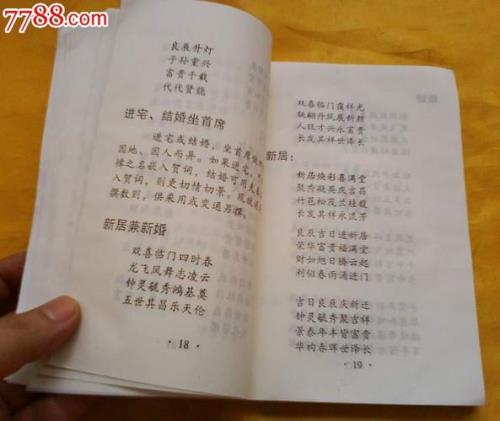 7788.com
良辰升灯
子孙重兴
富贵千载
代代贤能
进宅、结婚坐首席
进宅或结婚，坐首席
因地、因人而异。如果进宅，
缘之名嵌入贺词，结婚可用夫
入贺词，则更切情切景。现
撰数则，供采用或变通另撰。
新居兼新婚
双喜临门四时春
龙飞凤舞志凌云
钟灵毓秀鸿基奠
五世其昌乐天伦
·18·
双喜临门霭祥光
联翩丹凤展新
人旺才兴永富贵
长发其祥世泽长
新居：
新居焕彩喜满堂
聚秀凝英庆吉
竹苞松茂兰桂馥
长发其祥永流芳
良辰吉日进新居
荣华富贵福满堂
财如旭日腾云起
利似春雨涌进门
吉日良辰庆新迁
钟灵毓秀聚吉祥
景泰年丰皆富贵
华构春晖世泽长
·19·